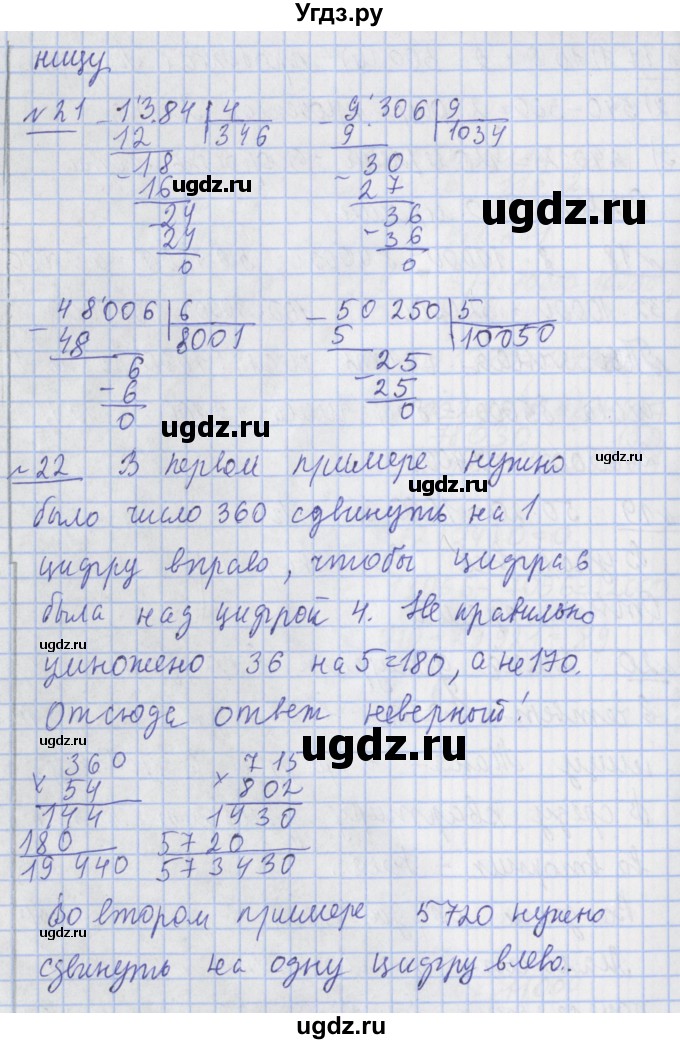 Угдз.ру
нищу
№21 - 13'84 | 4 - 9'306 | 9
12 346 9 1034
- 18 - 30
16 27
- 24 - 36
24 36
0 0
ugdz.ru ugdz.ru
- 48'006 | 6 - 50 250 | 5
48 8001 5 10050
- 6 - 25
6 25
0 0
ugdz.ru
ugdz.ru
№22 В первом примере нужно
ugdz.ru
ugdz.ru
было число 360 сдвинуть на 1
цифру вправо, чтобы цифра 6
была над цифрой 4. Не правильно
ugdz.ru
умножено 36 на 5=180, а не 170.
Отсюда ответ неверный!
ugdz.ru
ugdz.ru
360 715
× 54 × 802
144 1430
180 5720
19 440 573430
Во втором примере 5720 нужно
ugdz.ru
сдвинуть на одну цифру влево.
ugdz.ru